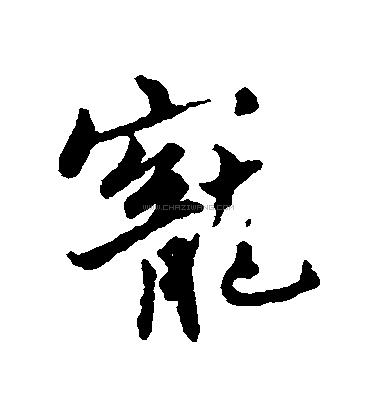 寵
WWW.CHAZIWANG.COM